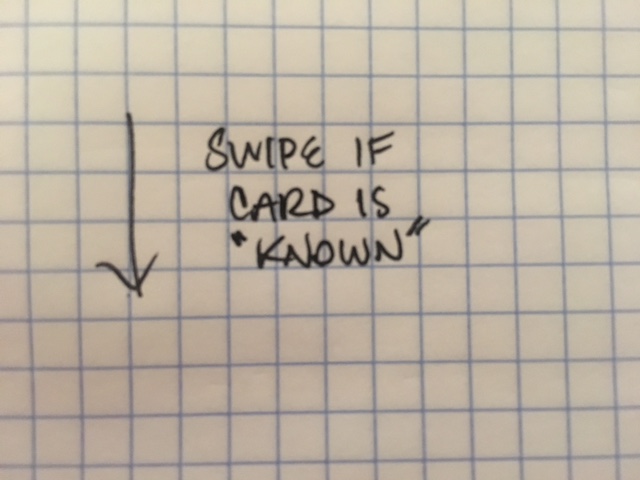 SWIPE IF
CARD IS
"KNOWN"